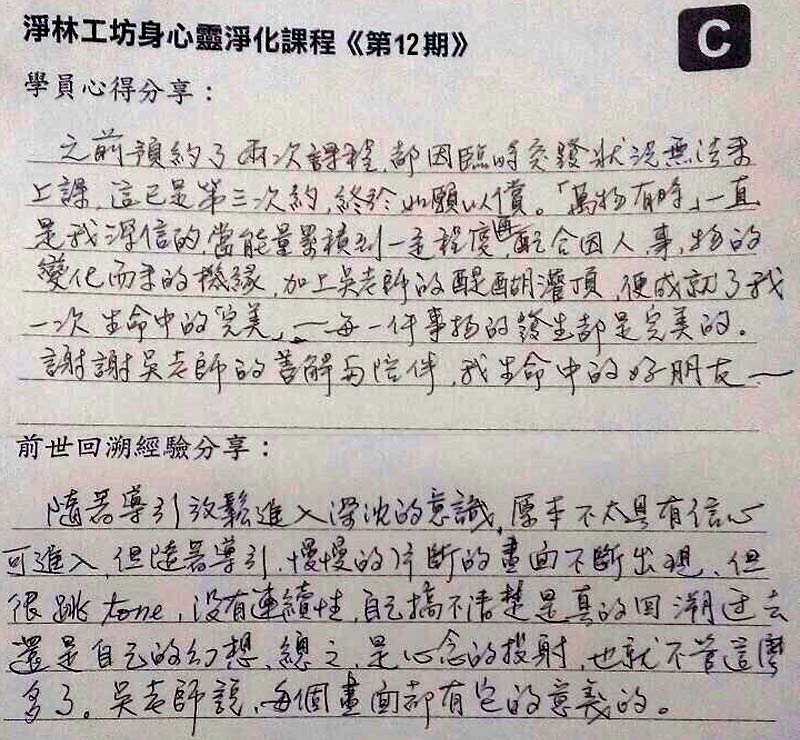 淨林工坊身心靈淨化課程《第12期》
C
學員心得分享：
之前預約了兩次課程,都因臨時突發狀況無法來
上課,這已是第三次約,終於如願以償。「萬物有時」一直
是我深信的,當能量累積到一定程度,再配合因人,事,物的
變化而來的機緣,加上吳老師的醍醐灌頂,便成就了我
一次生命中的「完美」—每一件事物的發生都是完美的。
謝謝吳老師的善解與陪伴,我生命中的好朋友～
前世回溯經驗分享：
隨著導引放鬆進入深沈的意識,原本不太具有信心
可進入,但隨著導引,慢慢的片斷的畫面不斷出現,但
很跳tone,沒有連續性,自己搞不清楚是真的回溯過去
還是自己的幻想,總之,是心念的投射,也就不管這麼
多了。吳老師說,每個畫面都有它的意義的。